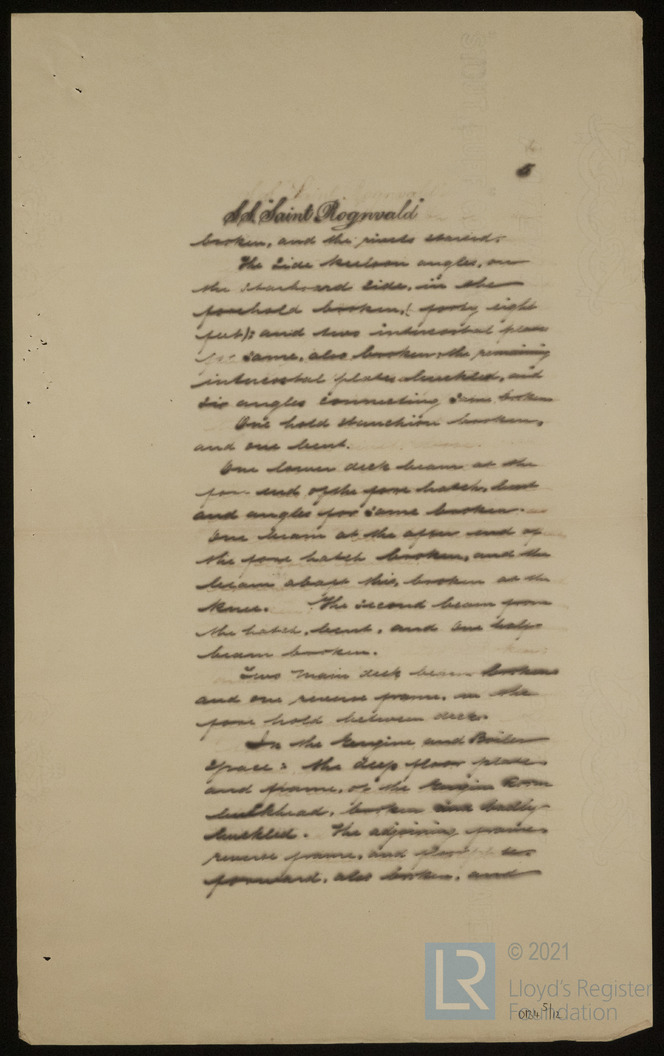 5
S.S. "Saint Rognvald"
broken, and the rivets started.
The Side Keelson angles, on
the Starboard Side, in the
forehold broken, (forty eight
feet); and two intercostal plates
for same, also broken, the remaining
intercostal plates buckled, and
six angles connecting same broken
One hold stanchion broken,
and one bent.
One lower deck beam at the
fore end of the fore hatch, bent
and angles for same broken.
One beam at the after end of
the fore hatch broken, and the
beam abaft this, broken at the
Knee. The second beam from
the hatch, bent, and one half
beam broken.
Two main deck beams broken
and one reverse frame, in the
fore hold between decks.
In the Engine and Boiler
Space: the deep floor plate
and frame, at the Engine Room
bulkhead, broken and badly
buckled. The adjoining frame
reverse frame, and floor
forward, also broken, and
© 2021
Lloyd's Register
Foundation